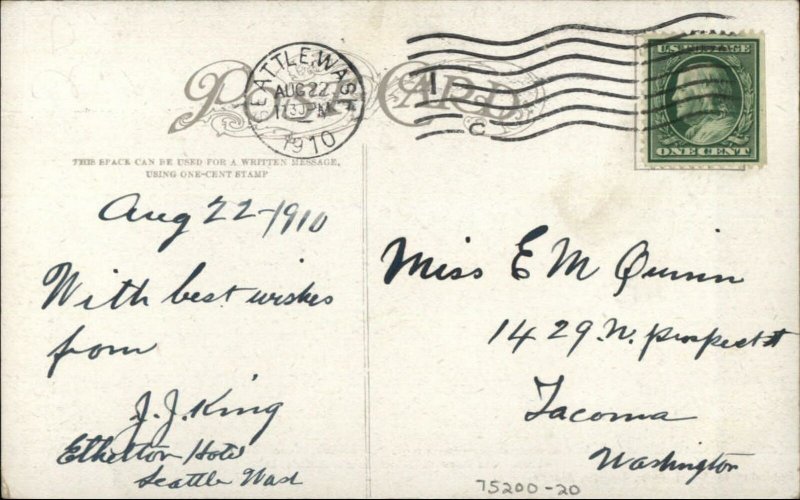 POST CARD
SEATTLE, WASH.
AUG 22
1130 PM
1910
1
C
U.S. POSTAGE
ONE CENT
THIS SPACE CAN BE USED FOR A WRITTEN MESSAGE,
USING ONE-CENT STAMP
Aug 22-1910
With best wishes
from
J.J. King
Etherton Hotel
Seattle Wash
Miss E M Quinn
1429 N. prospect st
Tacoma
Washington
75200-20